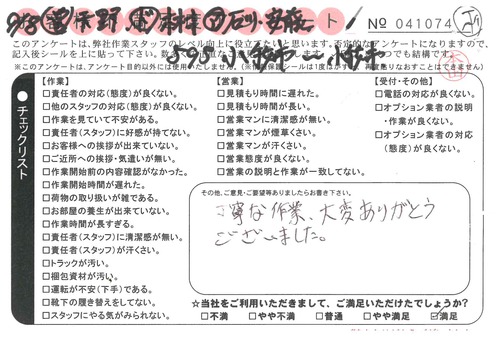 № 041074
このアンケートは、弊社作業スタッフのレベル向上に役立てたいと思います。否定的なアンケートになりますので、
※このアンケートは、アンケート目的以外には使用いたしません。
チェックリスト
【作業】
□責任者の対応(態度)が良くない。
□他のスタッフの対応(態度)が良くない。
□作業を見ていて不安がある。
□責任者(スタッフ)に好感が持てない。
□お客様への挨拶が出来ていない。
□ご近所への挨拶・気遣いが無い。
□作業開始前の内容確認がなかった。
□作業開始時間が遅れた。
□荷物の取り扱いが雑である。
□お部屋の養生が出来ていない。
□作業時間が長すぎる。
□責任者(スタッフ)に清潔感が無い。
□責任者(スタッフ)が汗くさい。
□トラックが汚い。
□梱包資材が汚い。
□運転が不安(下手)である。
□靴下の履き替えをしてない。
□スタッフにやる気がみられない。
【営業】
□見積もり時間に遅れた。
□見積もり時間が長い。
□営業マンに清潔感が無い。
□営業マンが煙草くさい。
□営業マンが汗くさい。
□営業態度が良くない。
□営業の説明と作業が一致してない。
【受付・その他】
□電話の対応が良くない。
□オプション業者の説明
・作業が良くない。
□オプション業者の対応
(態度)が良くない。
その他、ご意見・ご要望等ありましたらお書き下さい。
丁寧な作業、大変ありがとう
ございました。
☆当社をご利用いただきまして、ご満足いただけたでしょうか?
□不満 □やや不満 □普通 □やや満足 ☑満足